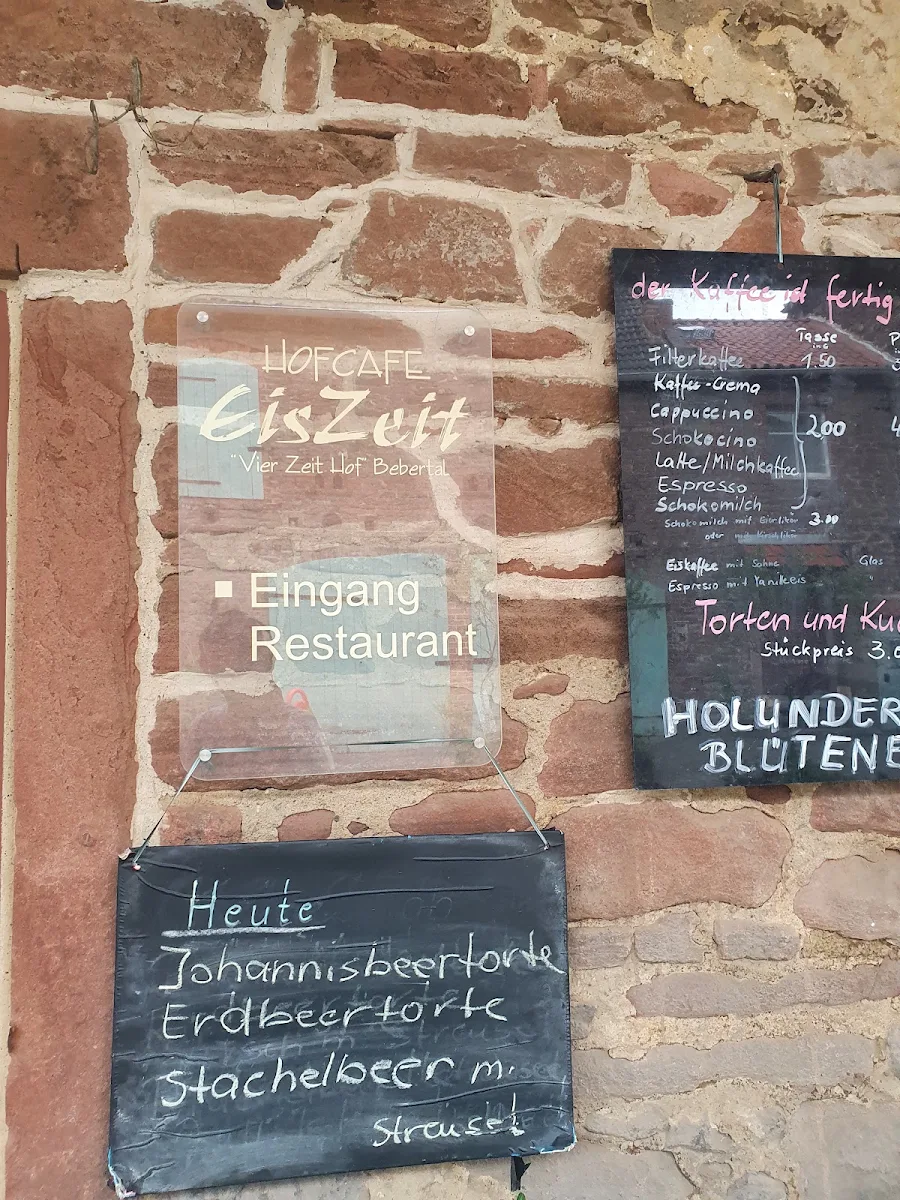 HOFCAFE
EisZeit
"Vier Zeit Hof" Bebertal
▪ Eingang
Restaurant
Heute
Johannisbeertorte
Erdbeertorte
Stachelbeer m.
Streusel
der Kaffee ist fertig
Tasse
Filterkaffee 1.50
Kaffee-Crema
Cappuccino
Schokocino 2,00
Latte/Milchkaffee
Espresso
Schokomilch
Schokomilch mit Eierlikör 3.00
oder mit Kirschlikör
Eiskaffee mit Sahne Glas
Espresso mit Vanilleeis "
Torten und Ku
Stückpreis 3.0
HOLUNDER
BLÜTENE